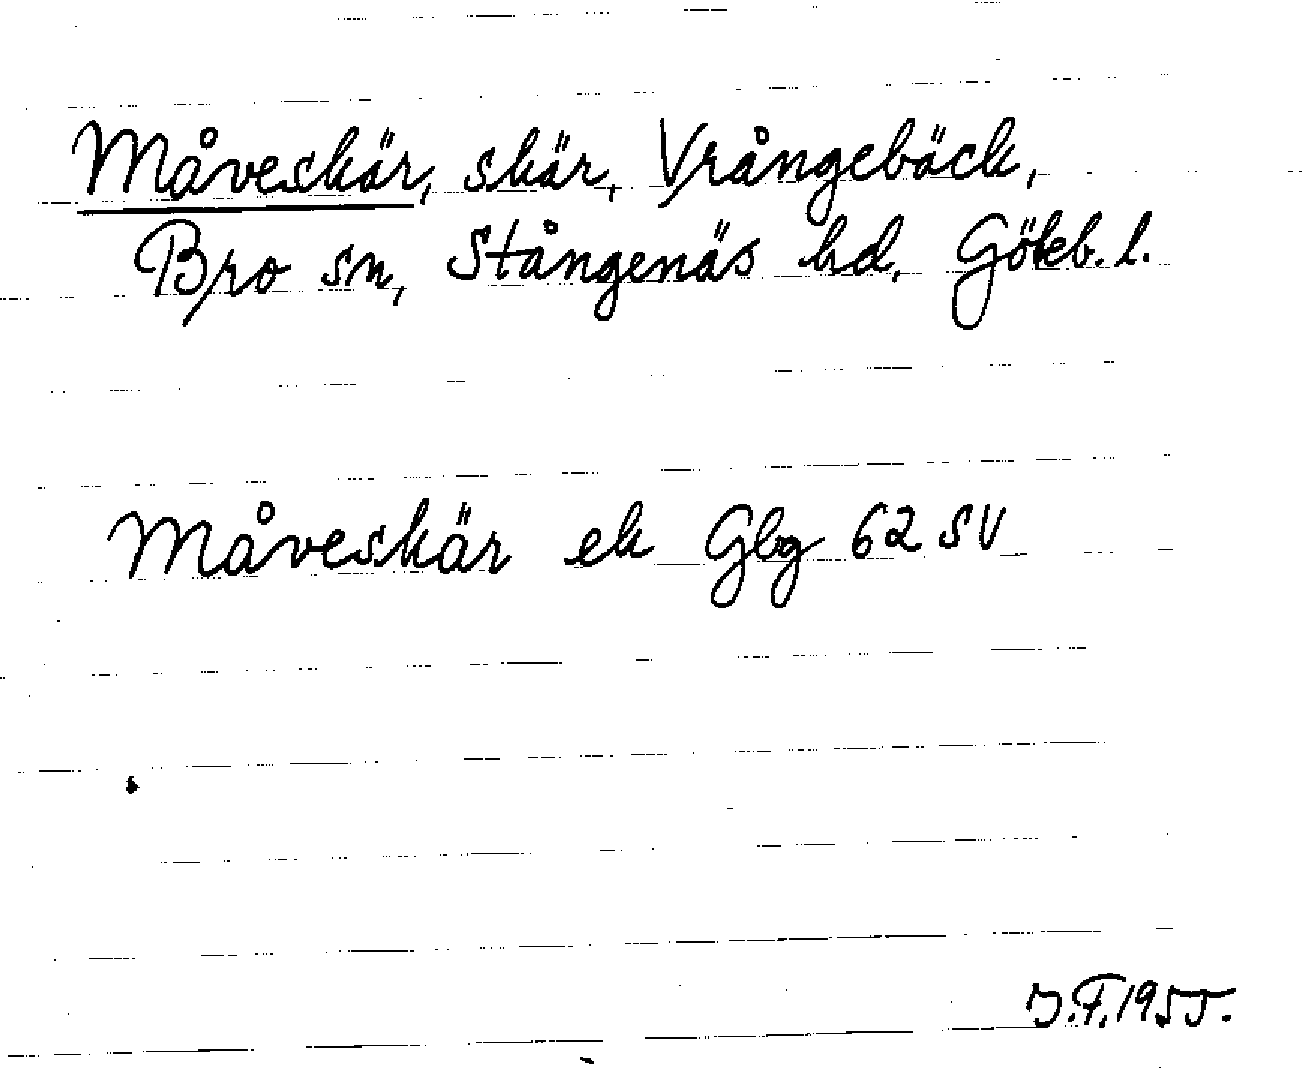 Måveskär, skär, Vrångebäck,
Bro sn, Stångenäs hd, Göteb. l.
Måveskär ek Gbg 62 SV
J.F. 1955.